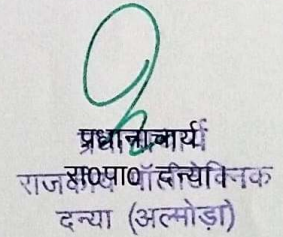 प्रधानाचार्य
रा0पा0 दन्या
राजकीय पॉलीटेक्निक
दन्या (अल्मोड़ा)